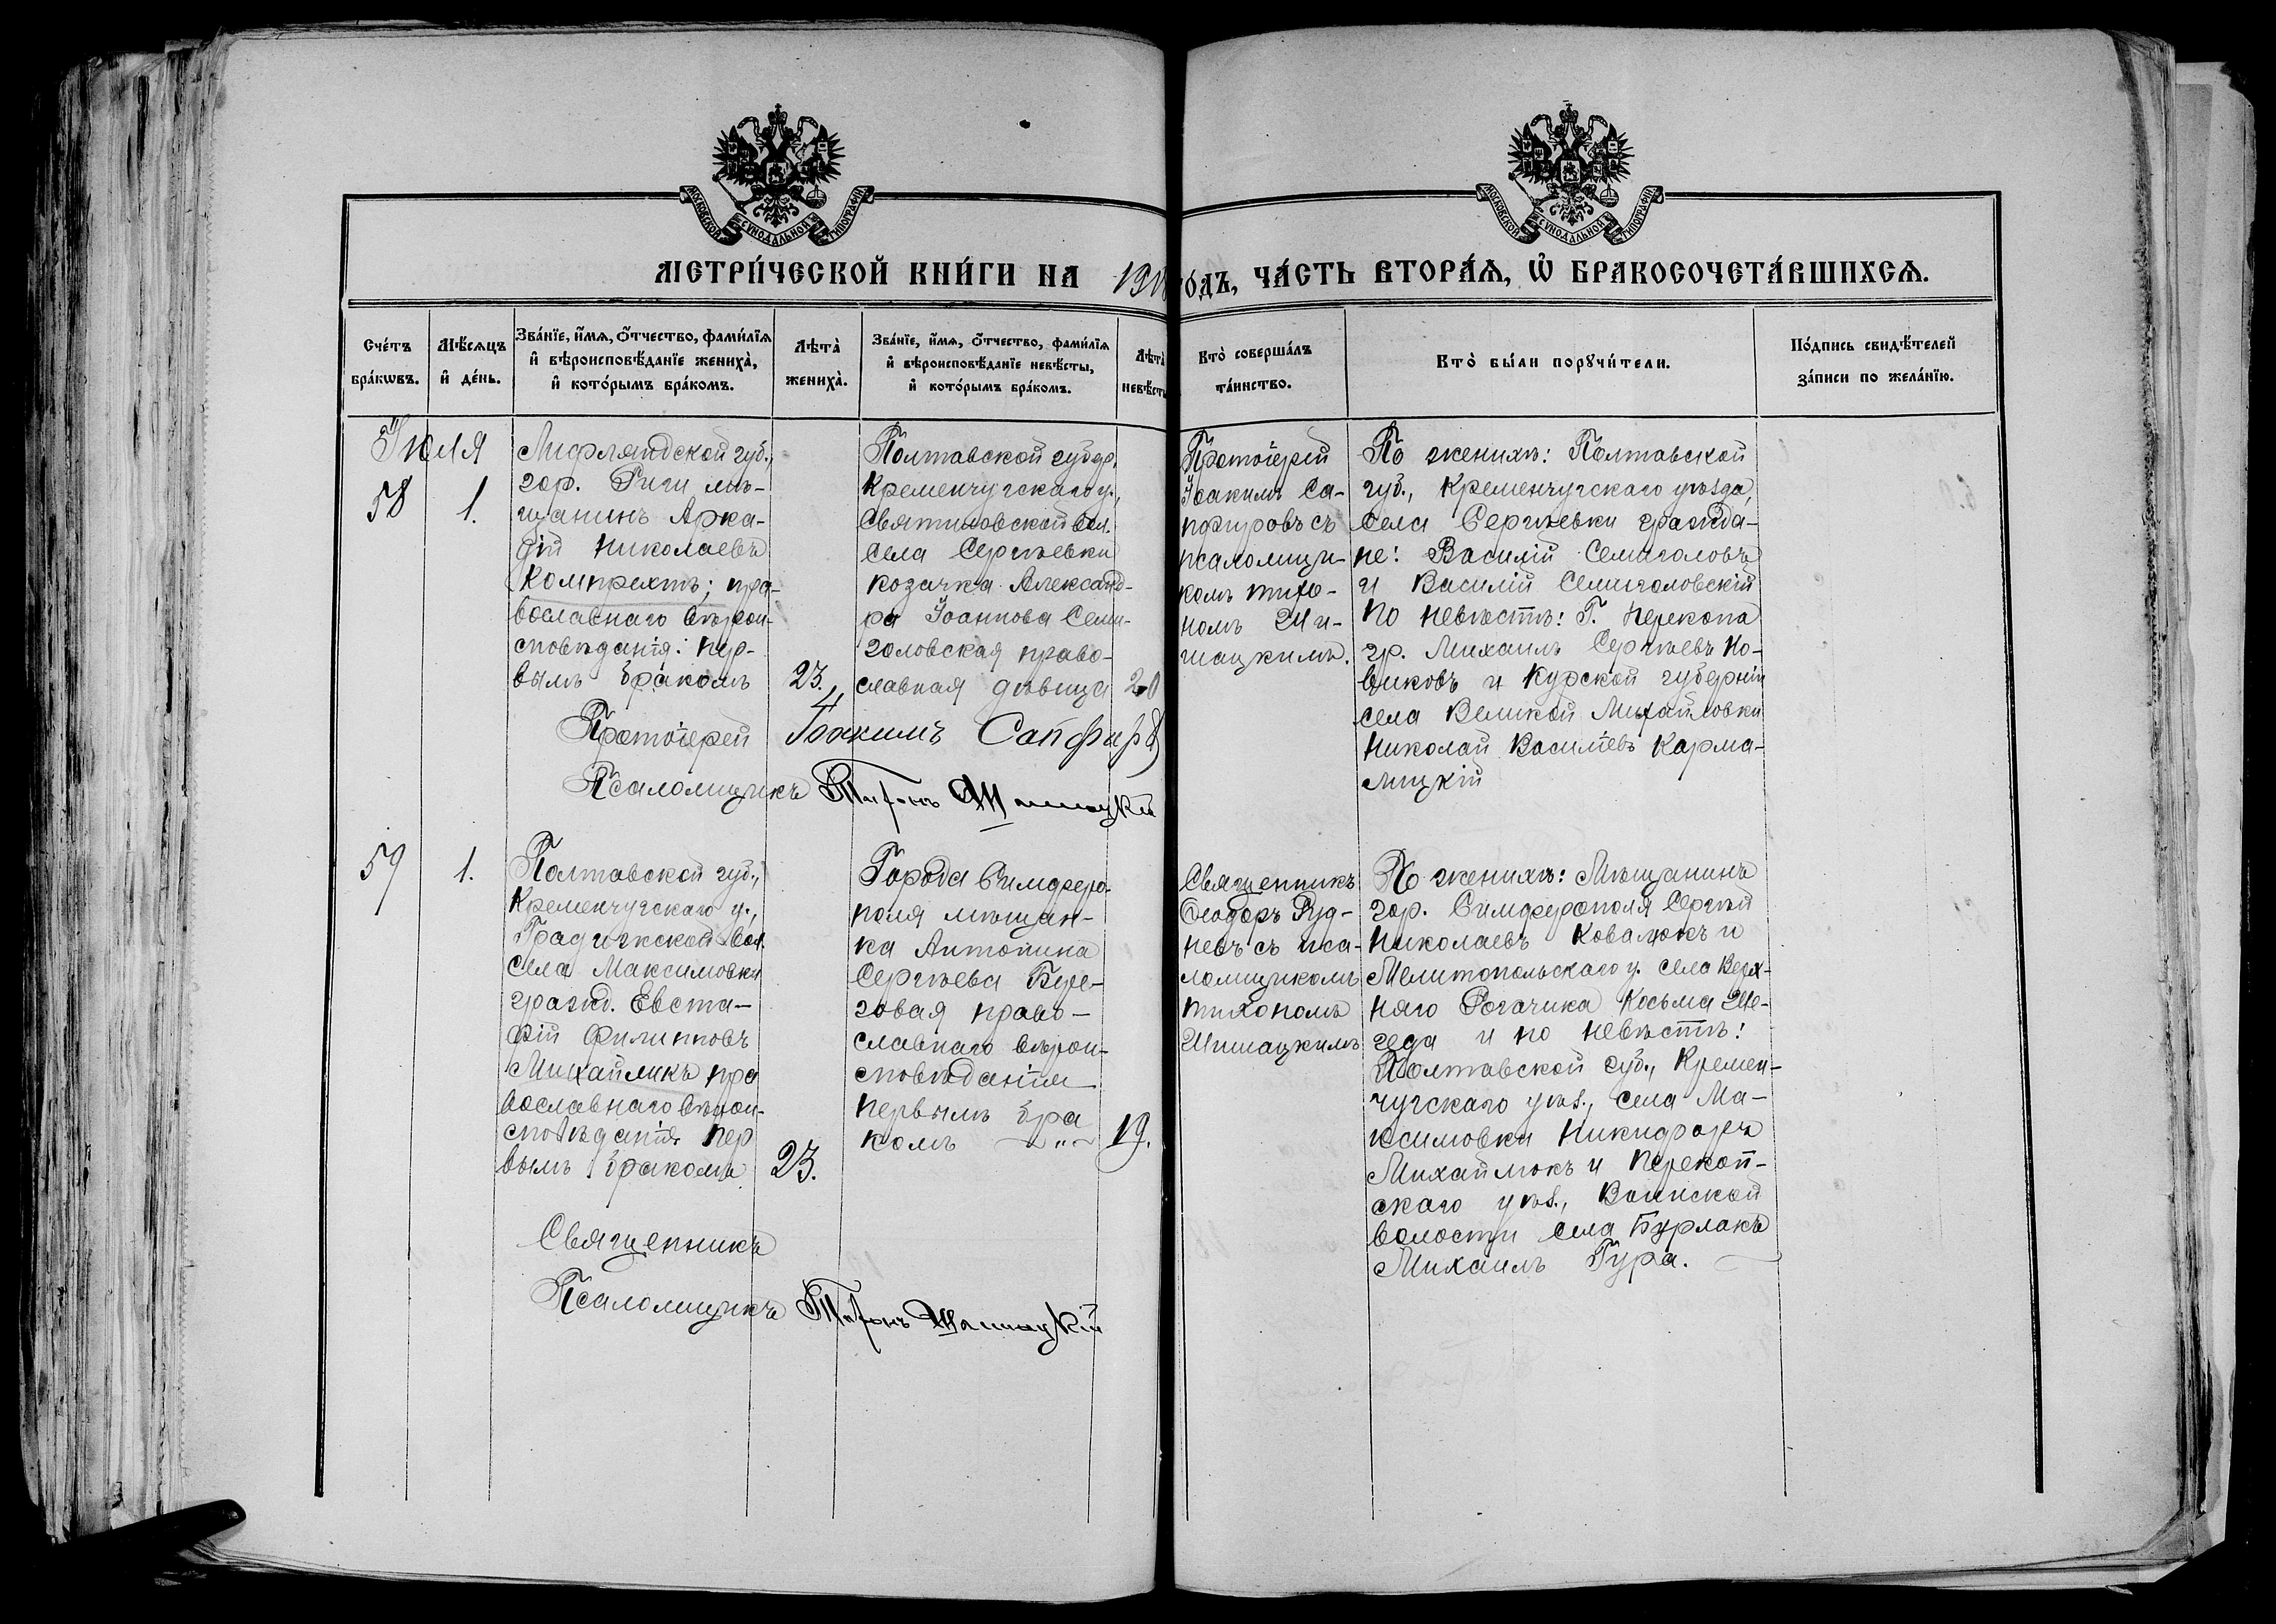 МОСКОВСКОЙ СѴНОДАЛЬНОЙ ТИПОГРАФІИ
МОСКОВСКОЙ СѴНОДАЛЬНОЙ ТИПОГРАФІИ
МЕТРИ́ЧЕСКОЙ КНИ́ГИ НА
О́ДЪ, ЧА́СТЬ ВТОРА́Ѧ, Ѽ БРАКОСОЧЕТА́ВШИХСѦ.
Сче́тъ бра́кѡвъ.
Мѣ́сѧцъ и҆ де́нь.
Зва́нїе, и҆́мѧ, ѻ҆́тчество, фами́лїѧ
и҆ вѣроисповѣ́данїе жениха̀,
и҆ кото́рымъ бра́комъ.
Лѣта̀ жениха̀.
Зва́нїе, и҆́мѧ, ѻ҆́тчество, фами́лїѧ
и҆ вѣроисповѣ́данїе невѣ́сты,
и҆ кото́рымъ бра́комъ.
Лѣта̀ невѣ́сты
Кто̀ соверша́лъ
та́инство.
Кто̀ бы́ли порꙋчи́тели.
По́дпись свидѣ́телей
за́писи по жела́нїю.
Іюля
58
1.
Лифляндской губ.,
гор. Риги мѣ-
щанинъ Арка-
дій Николаевъ
Компрехтъ; пра-
вославнаго вѣрои-
сповѣданія: пер-
вымъ бракомъ
23.
Полтавской губер.
Кременчугскаго у.,
Святиловской вол.
села Сергѣевки
козачка Александ-
ра Іоаннова Семи-
головская право-
славная дѣвица
20
Протоіерей
Іоакимъ Са-
пфировъ съ
псаломщи-
комъ Тихо-
номъ Ши-
шацкимъ.
По женихѣ: Полтавской
губ., Кременчугскаго уѣзда,
села Сергѣевки гражда-
не: Василій Семиголовъ
и Василій Семиголовскій
По невѣстѣ: Г. Перекопа
гр. Михаилъ Сергѣевъ Но-
виковъ и Курской губерніи
села Великой Михайловки
Николай Василіевъ Карма-
лицкій
Протоіерей Іоакимъ Сапфировъ
Псаломщикъ Тихонъ Шишацкій
59
1.
Полтавской губ.,
Кременчугскаго у.,
Градижской вол.
села Максимовки
гражд. Евста-
фій Филипповъ
Михайликъ пра
вославнаго вѣрои-
сповѣданія пер
вымъ бракомъ
23.
Города Симферо-
поля мѣщан-
ка Антонина
Сергѣева Буре-
говая право-
славнаго вѣрои-
сповѣданія
первымъ бра
комъ
19.
Священникъ
Ѳеодоръ Руд-
невъ съ пса-
ломщикомъ
Тихономъ
Шишацкимъ
По женихѣ: Мѣщанинъ
гор. Симферополя Сергѣй
Николаевъ Ковалюкъ и
Мелитопольскаго у. села Верх-
няго Рогачика Косьма Ше-
геда и по невѣстѣ:
Полтавской губ., Кремен-
чугскаго уѣз., села Ма-
ксимовки Никифоръ
Михайлюкъ и Перекоп-
скаго уѣз., Воинской
волости села Бурлакъ
Михаилъ Гура.
Священникъ
Псаломщикъ Тихонъ Шишацкій